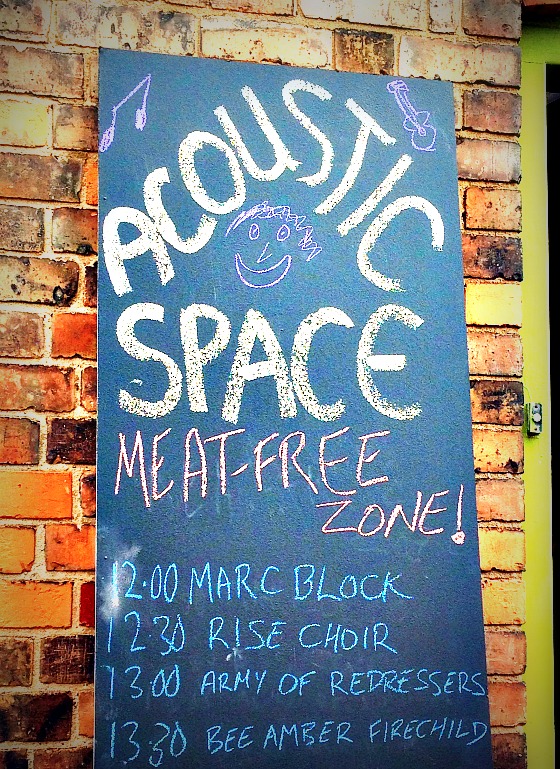 ACOUSTIC
SPACE
MEAT-FREE
ZONE!
12.00 MARC BLOCK
12.30 RISE CHOIR
13.00 ARMY OF REDRESSERS
13.30 BEE AMBER FIRECHILD